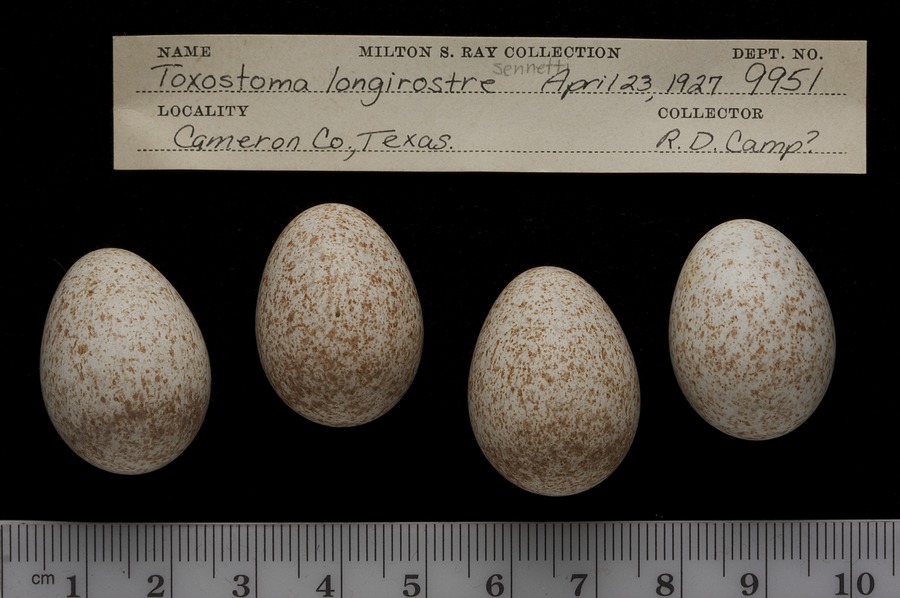 NAME MILTON S. RAY COLLECTION DEPT. NO.
Toxostoma longirostre sennetti April 23, 1927 9951
LOCALITY COLLECTOR
Cameron Co., Texas. R. D. Camp?
cm 1 2 3 4 5 6 7 8 9 10